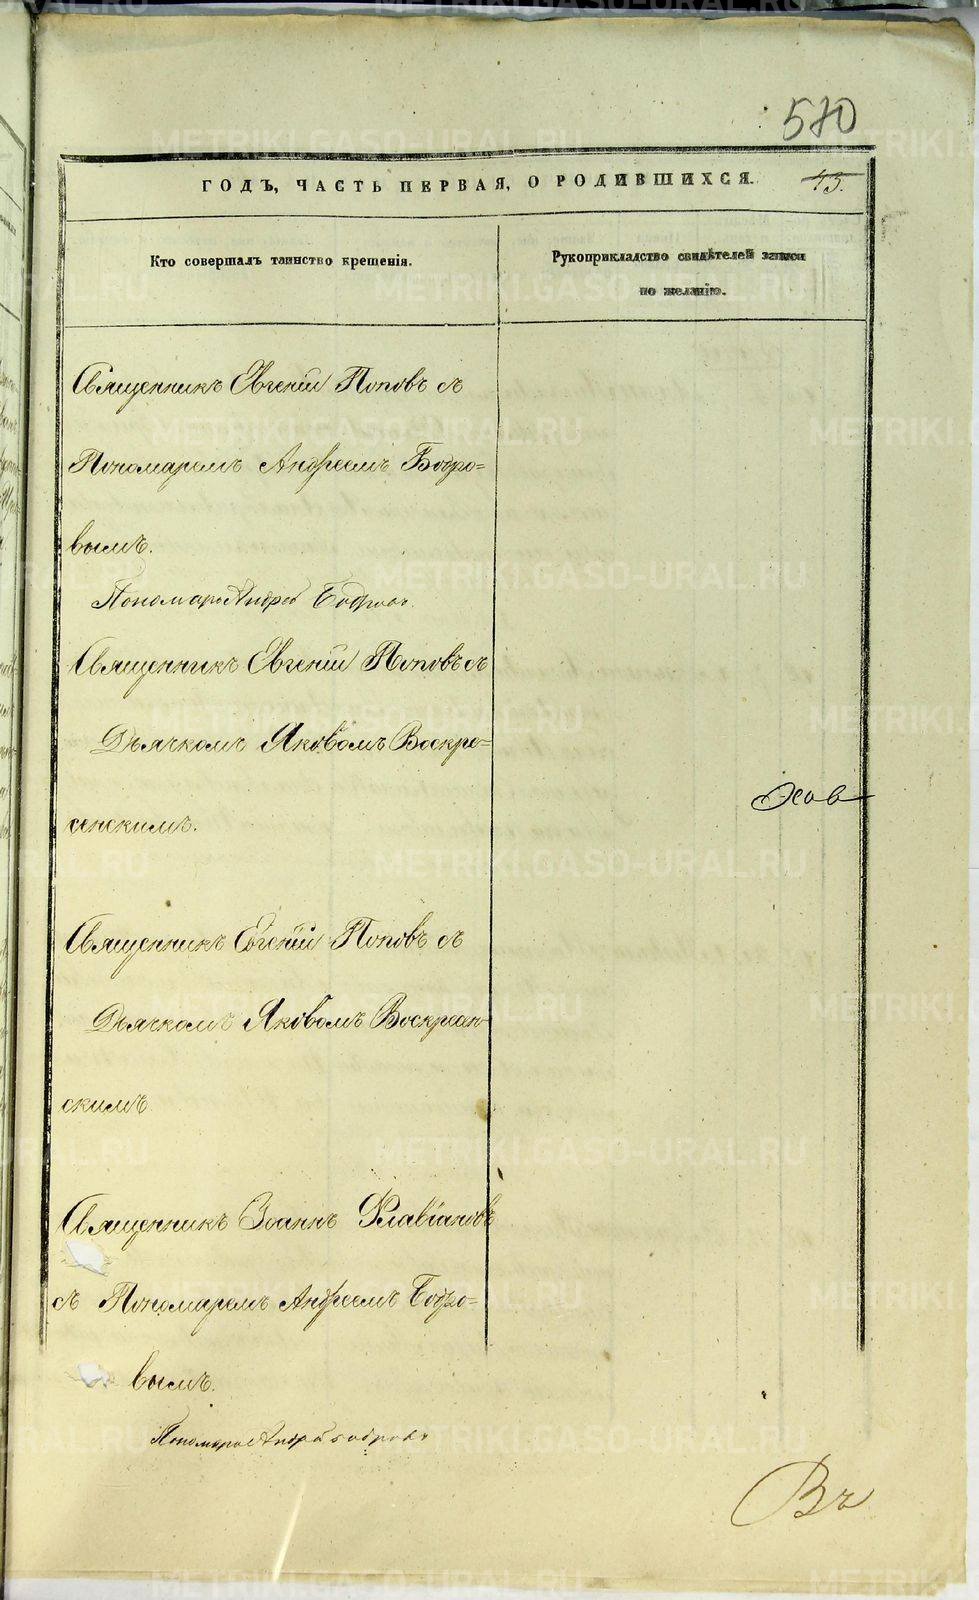 580
ГОДЪ, ЧАСТЬ ПЕРВАЯ, О РОДИВШИХСЯ. 45.
Кто совершалъ таинство крещенія.
Рукоприкладство свидѣтелей записи
по желанію.
Священникъ Евгеній Поповъ съ
Пономаремъ Андреемъ Бобро=
вымъ.
Пономарь Андрей Бобровъ.
Священникъ Евгеній Поповъ съ
Дьячкомъ Яковомъ Воскре=
сенскимъ.
Священникъ Евгеній Поповъ съ
Дьячкомъ Яковомъ Воскресен-
скимъ
Священникъ Іоаннъ Флавіановъ
съ Пономаремъ Андреемъ Бобро=
вымъ.
Пономарь Андрей Бобровъ
Въ
METRIKI.GASO-URAL.RU